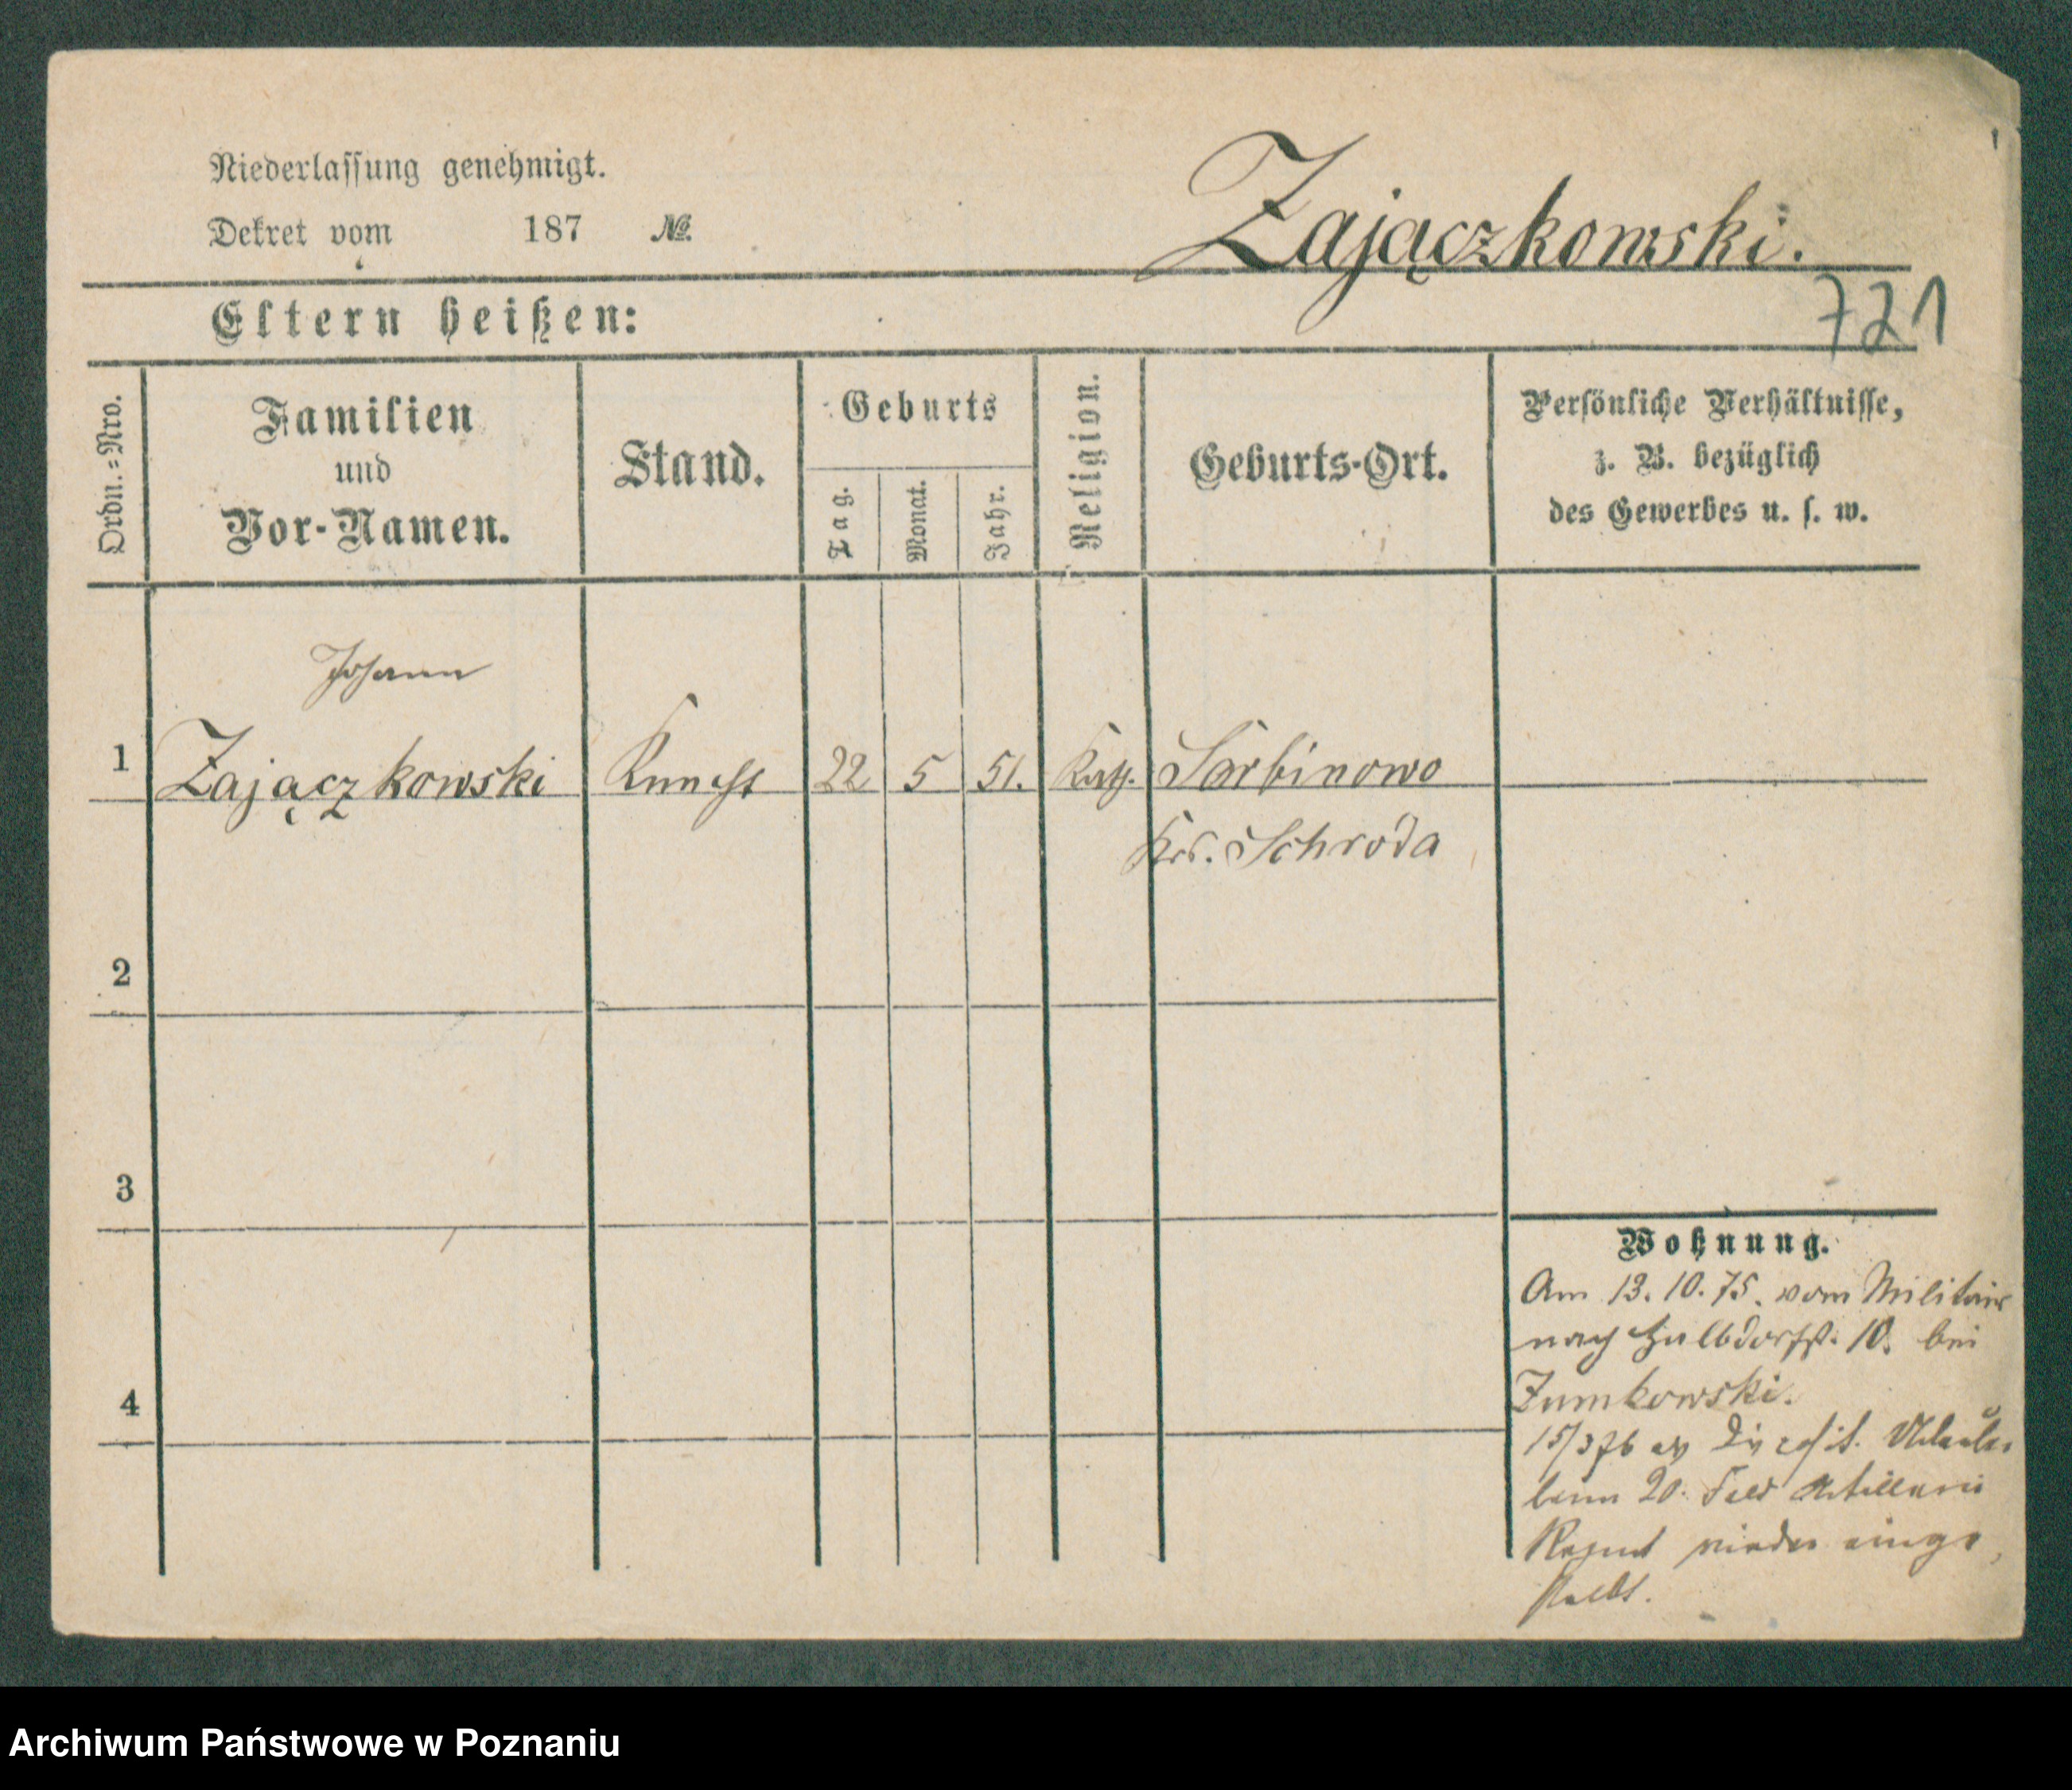 Niederlassung genehmigt.
Dekret vom 187 №
Zajączkowski.
721
Eltern heißen:
Ordn.=Nro.
Familien
und
Vor-Namen.
Stand.
Geburts
Tag.
Monat.
Jahr.
Religion.
Geburts-Ort.
Persönliche Verhältnisse,
z. B. bezüglich
des Gewerbes u. s. w.
Johann
1 Zajączkowski Knecht 22 5 51. Kath. Sarbinowo
Krs. Schroda
2
3
4
Wohnung.
Am 13. 10. 75. vom Militair
nach Halbdorfst. 10. bei
Zumkowski.
15/3 76 als Urlauber
beim 20. Feld Artillerie
Regmt wieder einge
stellt.
Archiwum Państwowe w Poznaniu